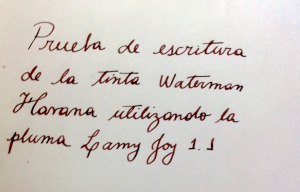 Prueba de escritura
de la tinta Waterman
Havana utilizando la
pluma Lamy Joy 1.1